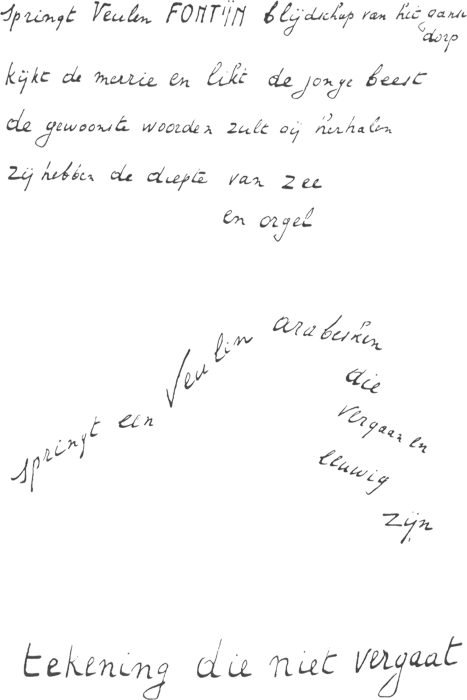 springt Veulen FONTIJN blijdschap van het gansche
dorp
kijkt de merrie en likt de jonge beest
de gewoonste woorden zult gij herhalen
zij hebben de diepte van zee
en orgel
springt een Veulen arabesken
die
vergaan en
eeuwig
zijn
tekening die niet vergaat